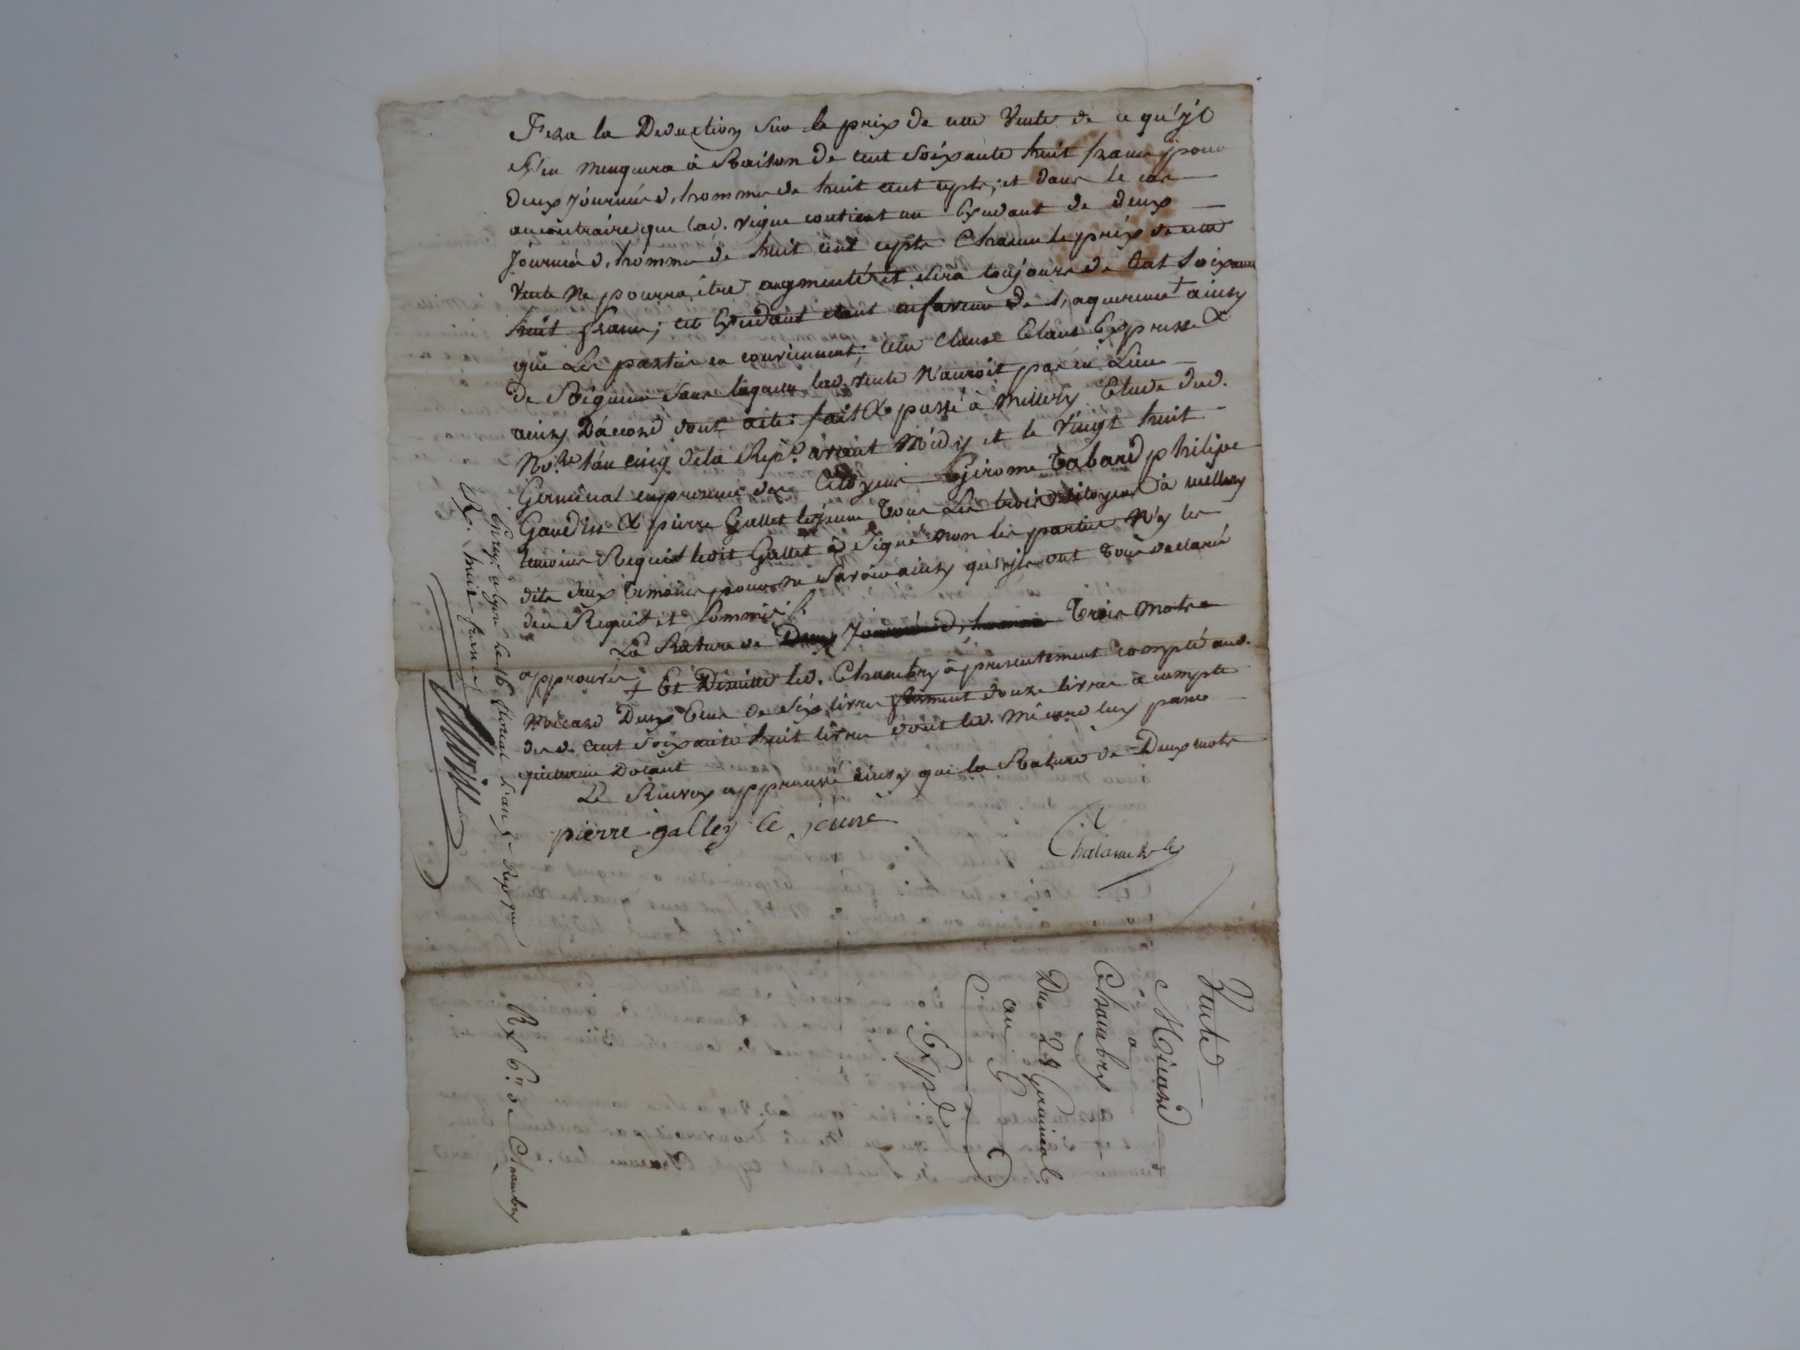 Fera la Deduction sur le prix de cette Vente de ce qu'jl
s'en menquera à Raison de cent soixante huit francs pour
deux Journées d'homme de huit cent cepts; et dans le cas
aucontraire que lad. vigne contient un Exedant de deux
Journées d'homme de huit cent cepts Chacune le prix de cette
Vente ne pourra être augmenté et sera toujours de Cent soixante
huit francs; cet Exedant étant enfaveur de l'aquereur † ainsy
que Les parties en conviennent; cette Clause Etant Expresse &
de Rigueur sans laquelle lad. vente N'auroit pas eü Lieu
ainsy D'accord dont acte: fait & passé à Millery Etude dud.
No.re l'an cinq dela Rep.e avant Midy et le Vingt huit
Germinal enpresence des Citoyens Gjerome Tabard philipe
Gaudin & pierre Gallet lejeune Tous Les trois Citoyens à millery
temoins Requis ledit Gallet à Signé non les parties N'y les
dits deux Temoins pour ne Savoir ainsy qu'ils ont Tous declaré
de ce Requis et Sommés
La Rature de Deux Journées d'homme Trois Mots
approuvés; † Et Desuitte led. Chambry à presentement compté aud.
Micard Deux Ecus de Six livres forment douze livres à compte
desd. cent soixante huit livres dont led. Micard luy passe
quittance Dotant
Le Renvoy approuvé ainsy que la Rature de Deux mots
pierre galley le jeune
Enreg. a Lyon le 16 floreal l'an 5e Rep.que
R. huit francs
Vente
Micard
a
Chambry
Du 28 Germinal
an 5
Expd
Rx 6.tt de Chambry